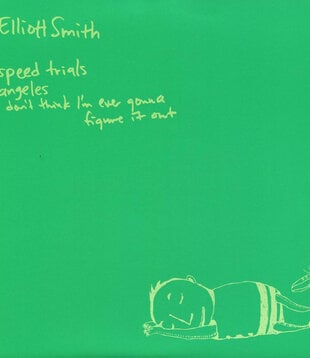 Elliott Smith
speed trials
angeles
don't think I'm ever gonna
figure it out